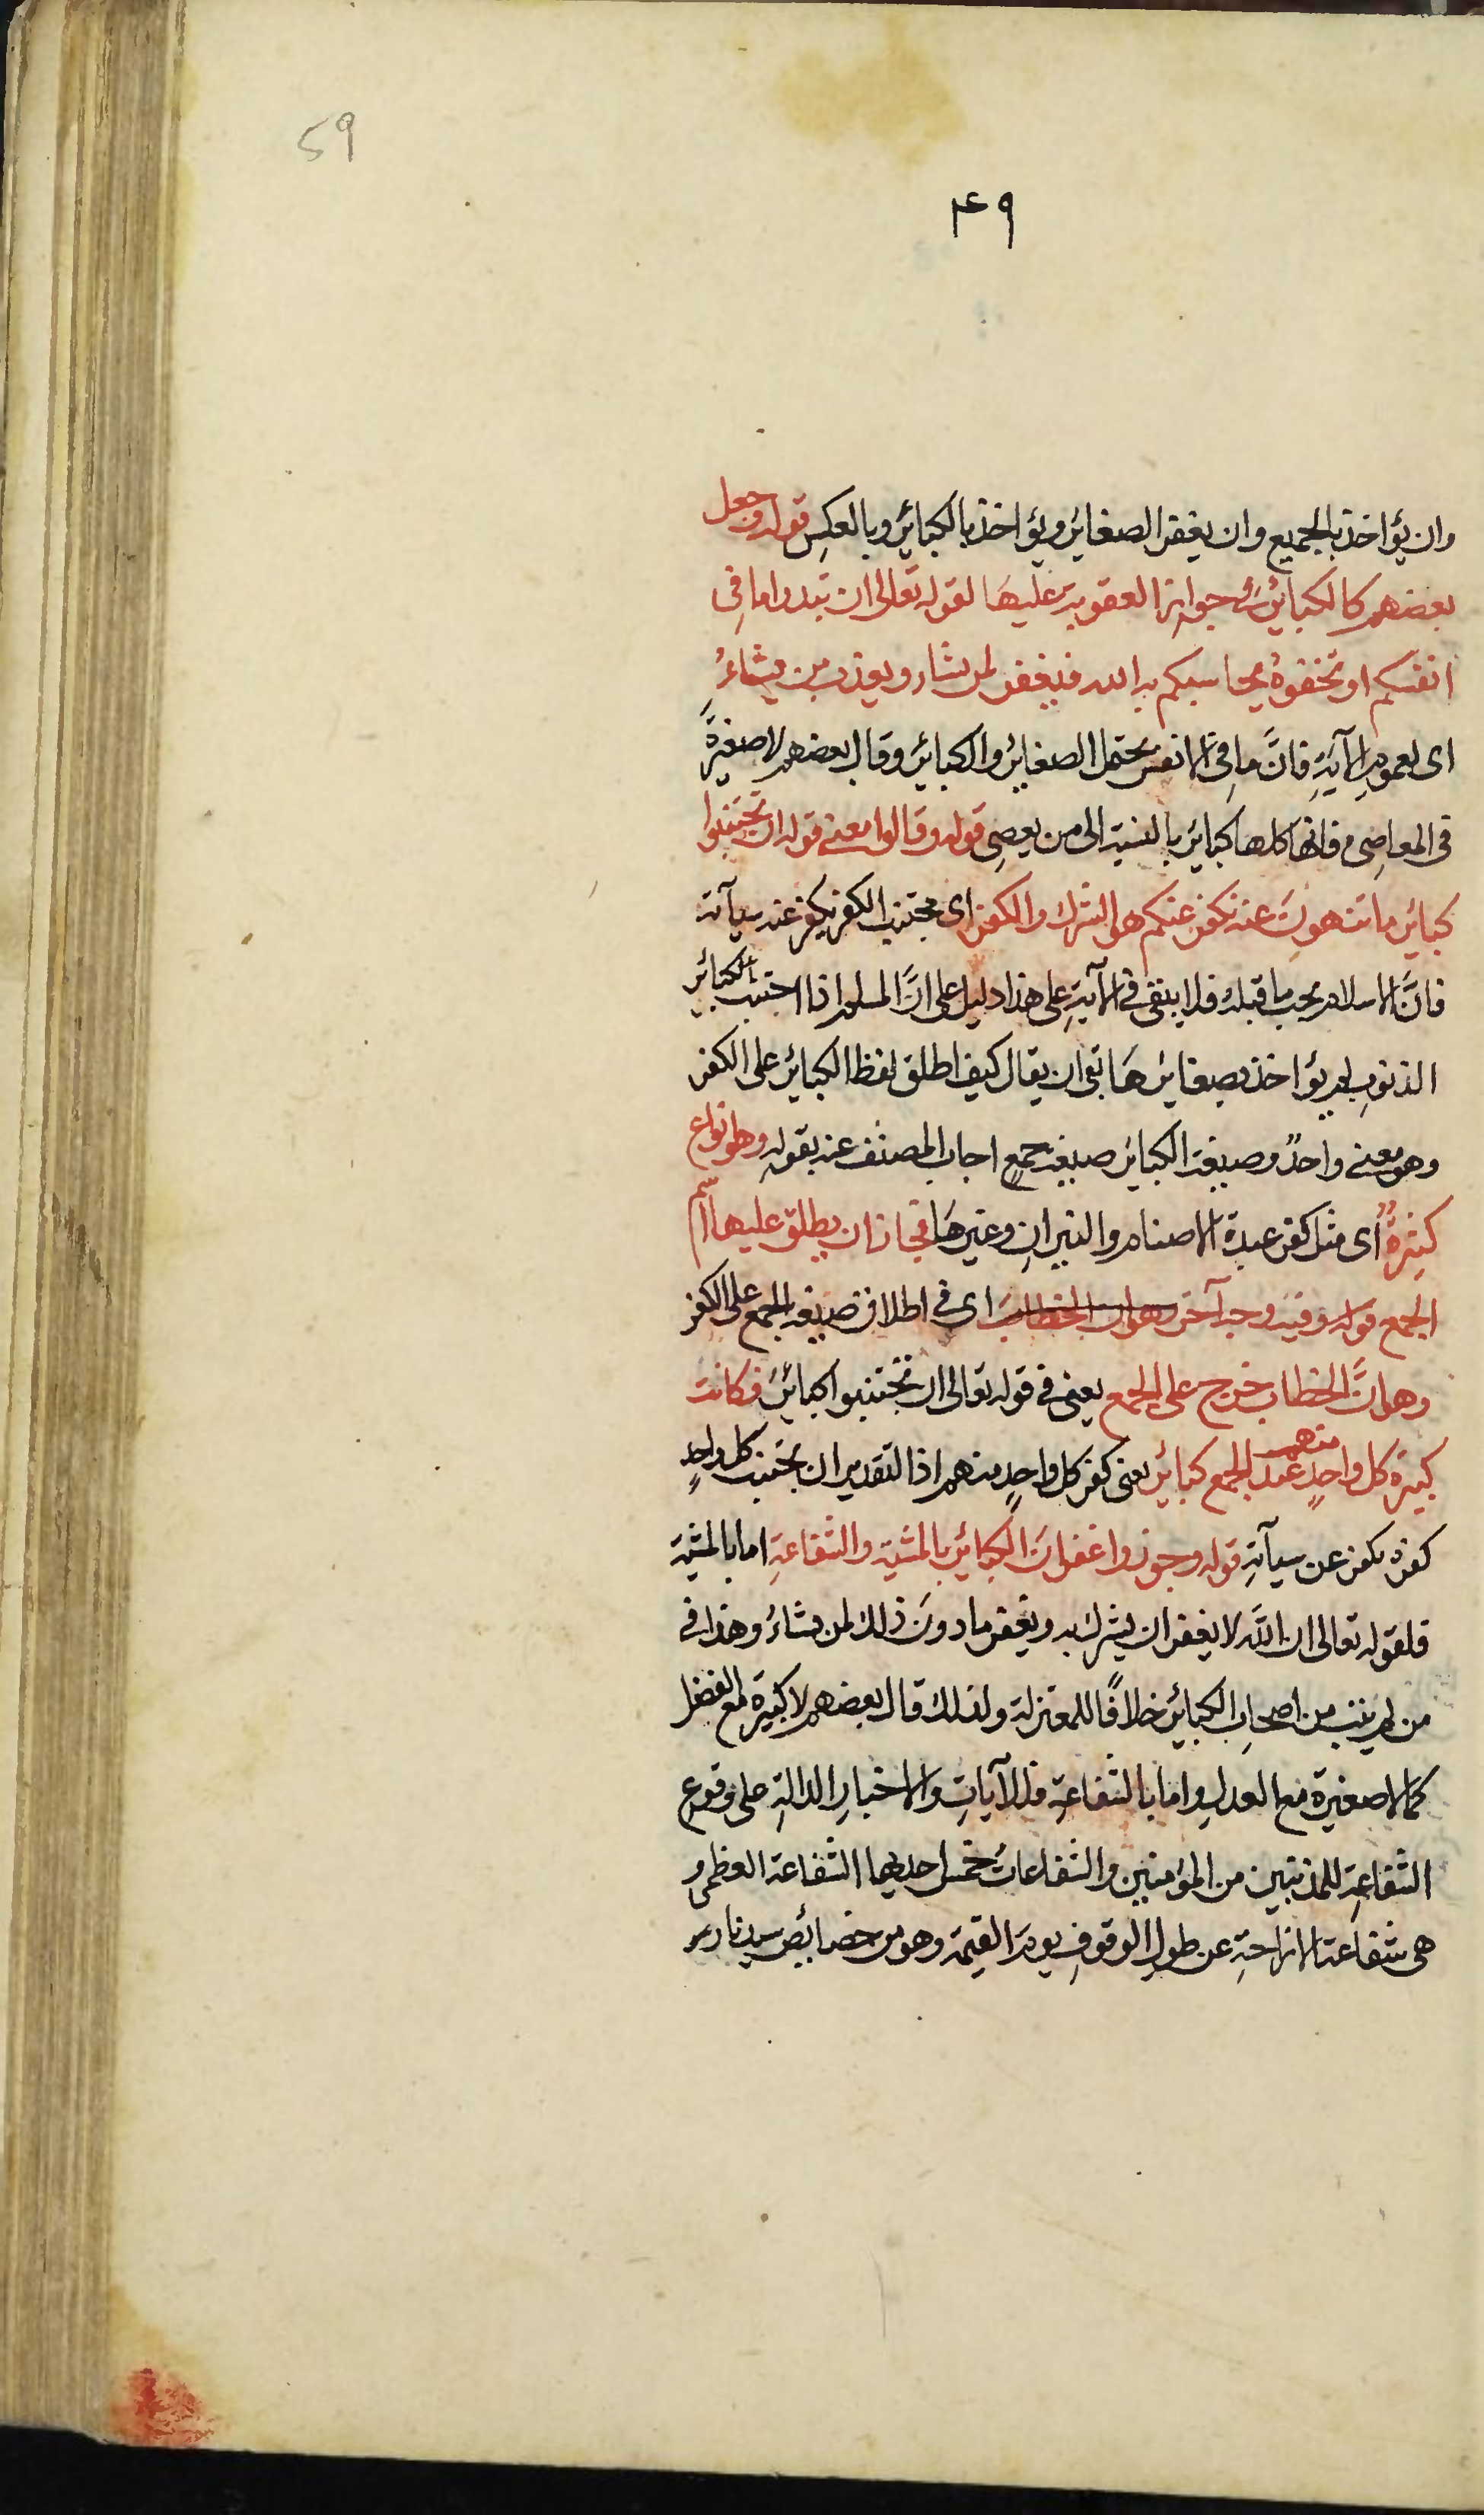 59
۴۹
وان يؤاخذ بالجميع وان يغفر الصغاير ويؤاخذ بالكبائر وبالعكس قوله وجعل
بعضهم كالكبائر في جواز العقوبة عليها لقوله تعالى ان تبدوا ما فى
انفسكم او تخفوهُ يحاسبكم به الله فيغفر لمن يشاء ويعذب من يشاءُ
اى لعموم الآيةِ فانَّ ما فى الانفس يحتمل الصغاير والكبائر وقال بعضهم لا صغيرةَ
فى المعاصى فانها كلها كبائر بالنسبة الى من يعصى قوله وقالوا معنى قوله ان تجتنبوا
كبائر ما تنهونَ عنه نكفر عنكم هى الشرك والكفر اى مجتنب الكفر يكفر عنه سيآته
فانَّ الاسلام يجب ما قبله فلا يبقى فى الآيةِ على هذا دليل على انَّ المسلم اذا اجتنب الكبائر
الذنوبِ لم يؤاخذ بصغايرهَا بقى ان يقال كيف اطلق لفظ الكبائر على الكفر
وهو معنى واحدٌ وصيغة الكبائر صيغة جمعٍ اجاب المصنف عنه بقولهِ وهو انواع
كثيرةٌ اى مثل كفر عبدة الاصنام والنيرانِ وغيرهَا فجاز ان يطلق عليها اسم
الجمع قوله وفيه وجه آخر وهو ان الخطابَ اى فى اطلاق صيغة الجمع على الكفر
وهو انَّ الخطاب خرج على الجمع يعنى فى قوله تعالى ان تجتنبوا كبائرَ فكانت
كبيرة كل واحدٍ منهم عند الجمع كبائر يعنى كفر كل واحدٍ منهم اذ التقدير ان يجتنب كل واحدٍ
كفره يكفر عن سيآتهِ قوله وجوزوا غفرانَ الكبائر بالمشية والشفاعةِ اما بالمشية
فلقوله تعالى ان اللّه لا يغفر ان يشرك به ويغفر ما دونَ ذلك لمن يشاءُ وهذا فى
من لم يتب من اصحابِ الكبائر خلافًا للمعتزلة ولذلك قال بعضهم لا كبيرة مع الفضل
كما لا صغيرة مع العدلِ واما بالشفاعةِ فللآياتِ والاخبارِ الدالةِ على وقوع
الشفاعةِ للمذنبين من المؤمنين والشفاعاتُ خمس احديها الشفاعة العظمى و
هى شفاعة الازاحةِ عن طولِ الوقوفِ يومَ القيمة وهو من خصائص سيدنا